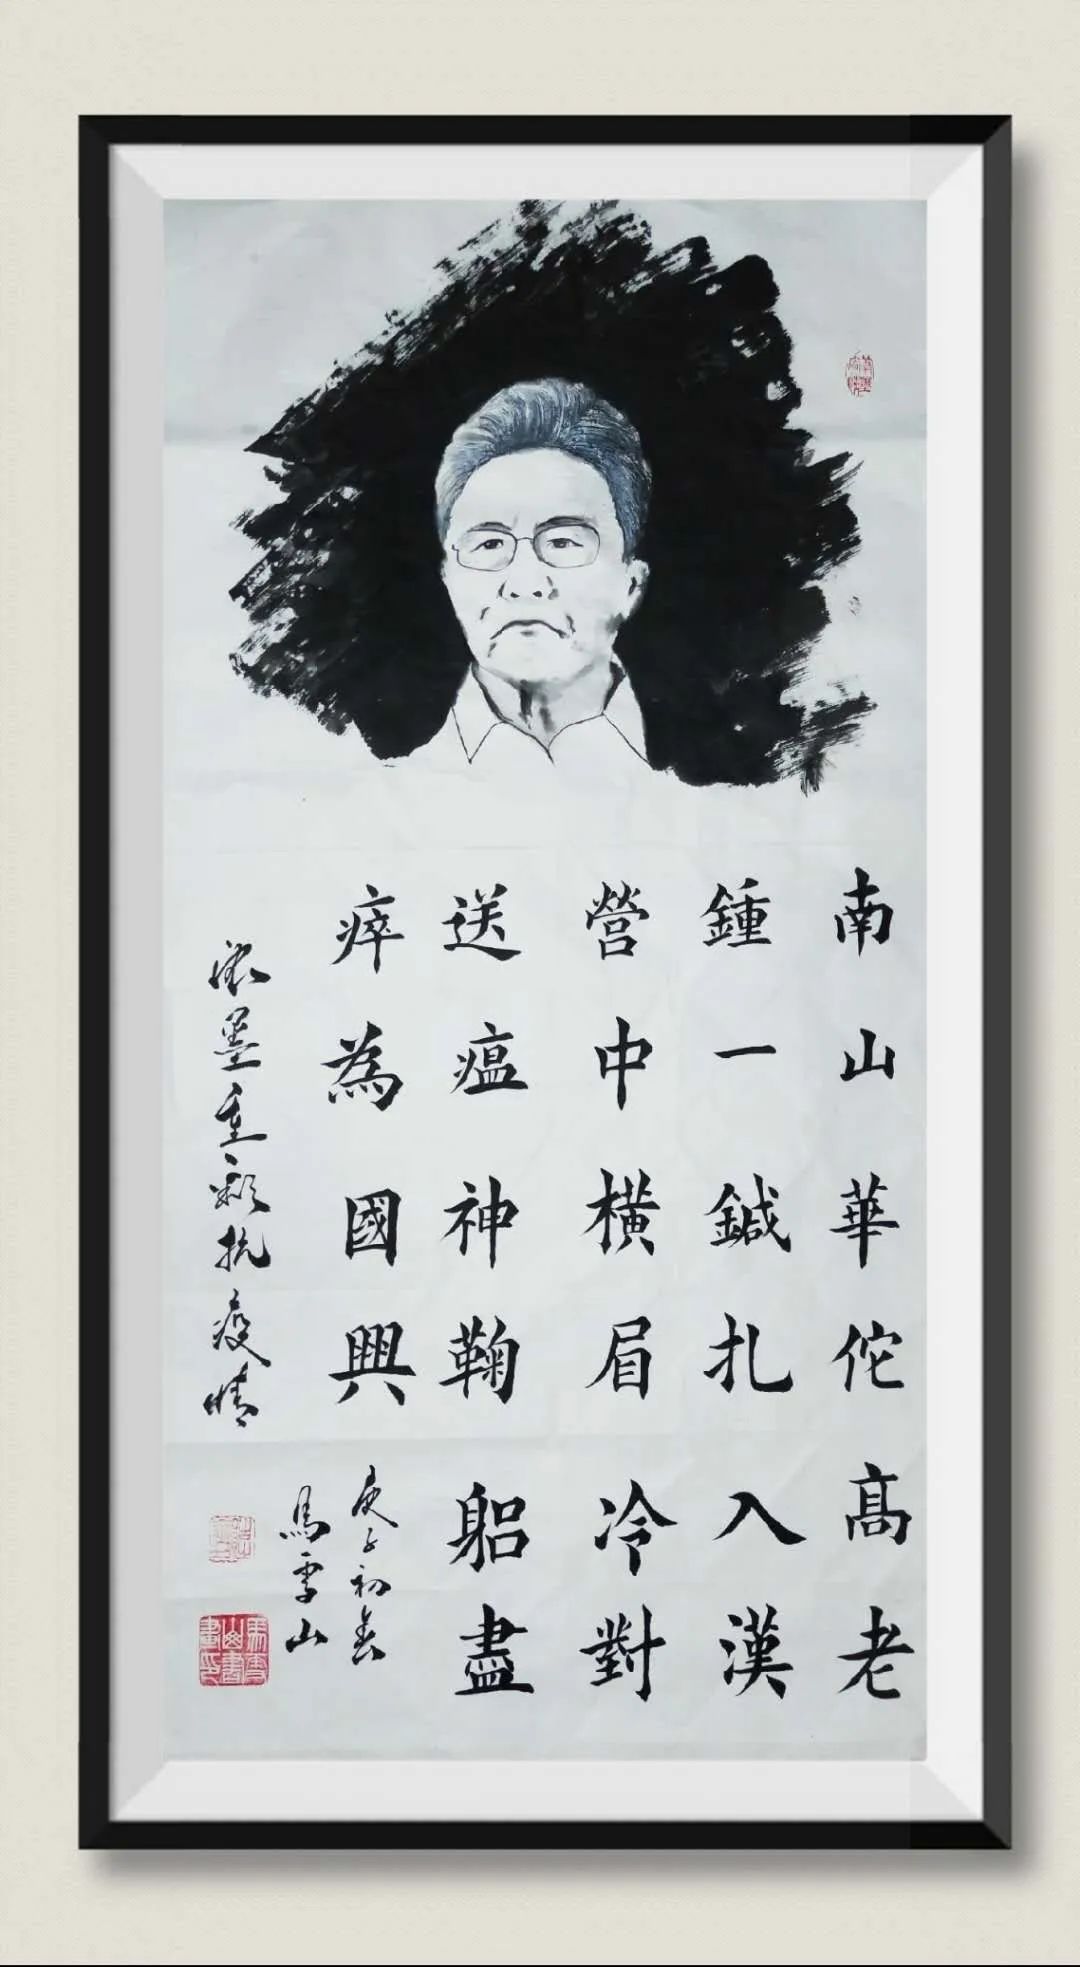 南山華佗高老
鍾一鍼扎入漢
營中橫眉冷對
送瘟神鞠躬盡
瘁為國興
庚子初春
馬雪山
濃墨重彩抗疫情
馬雪山書畫印